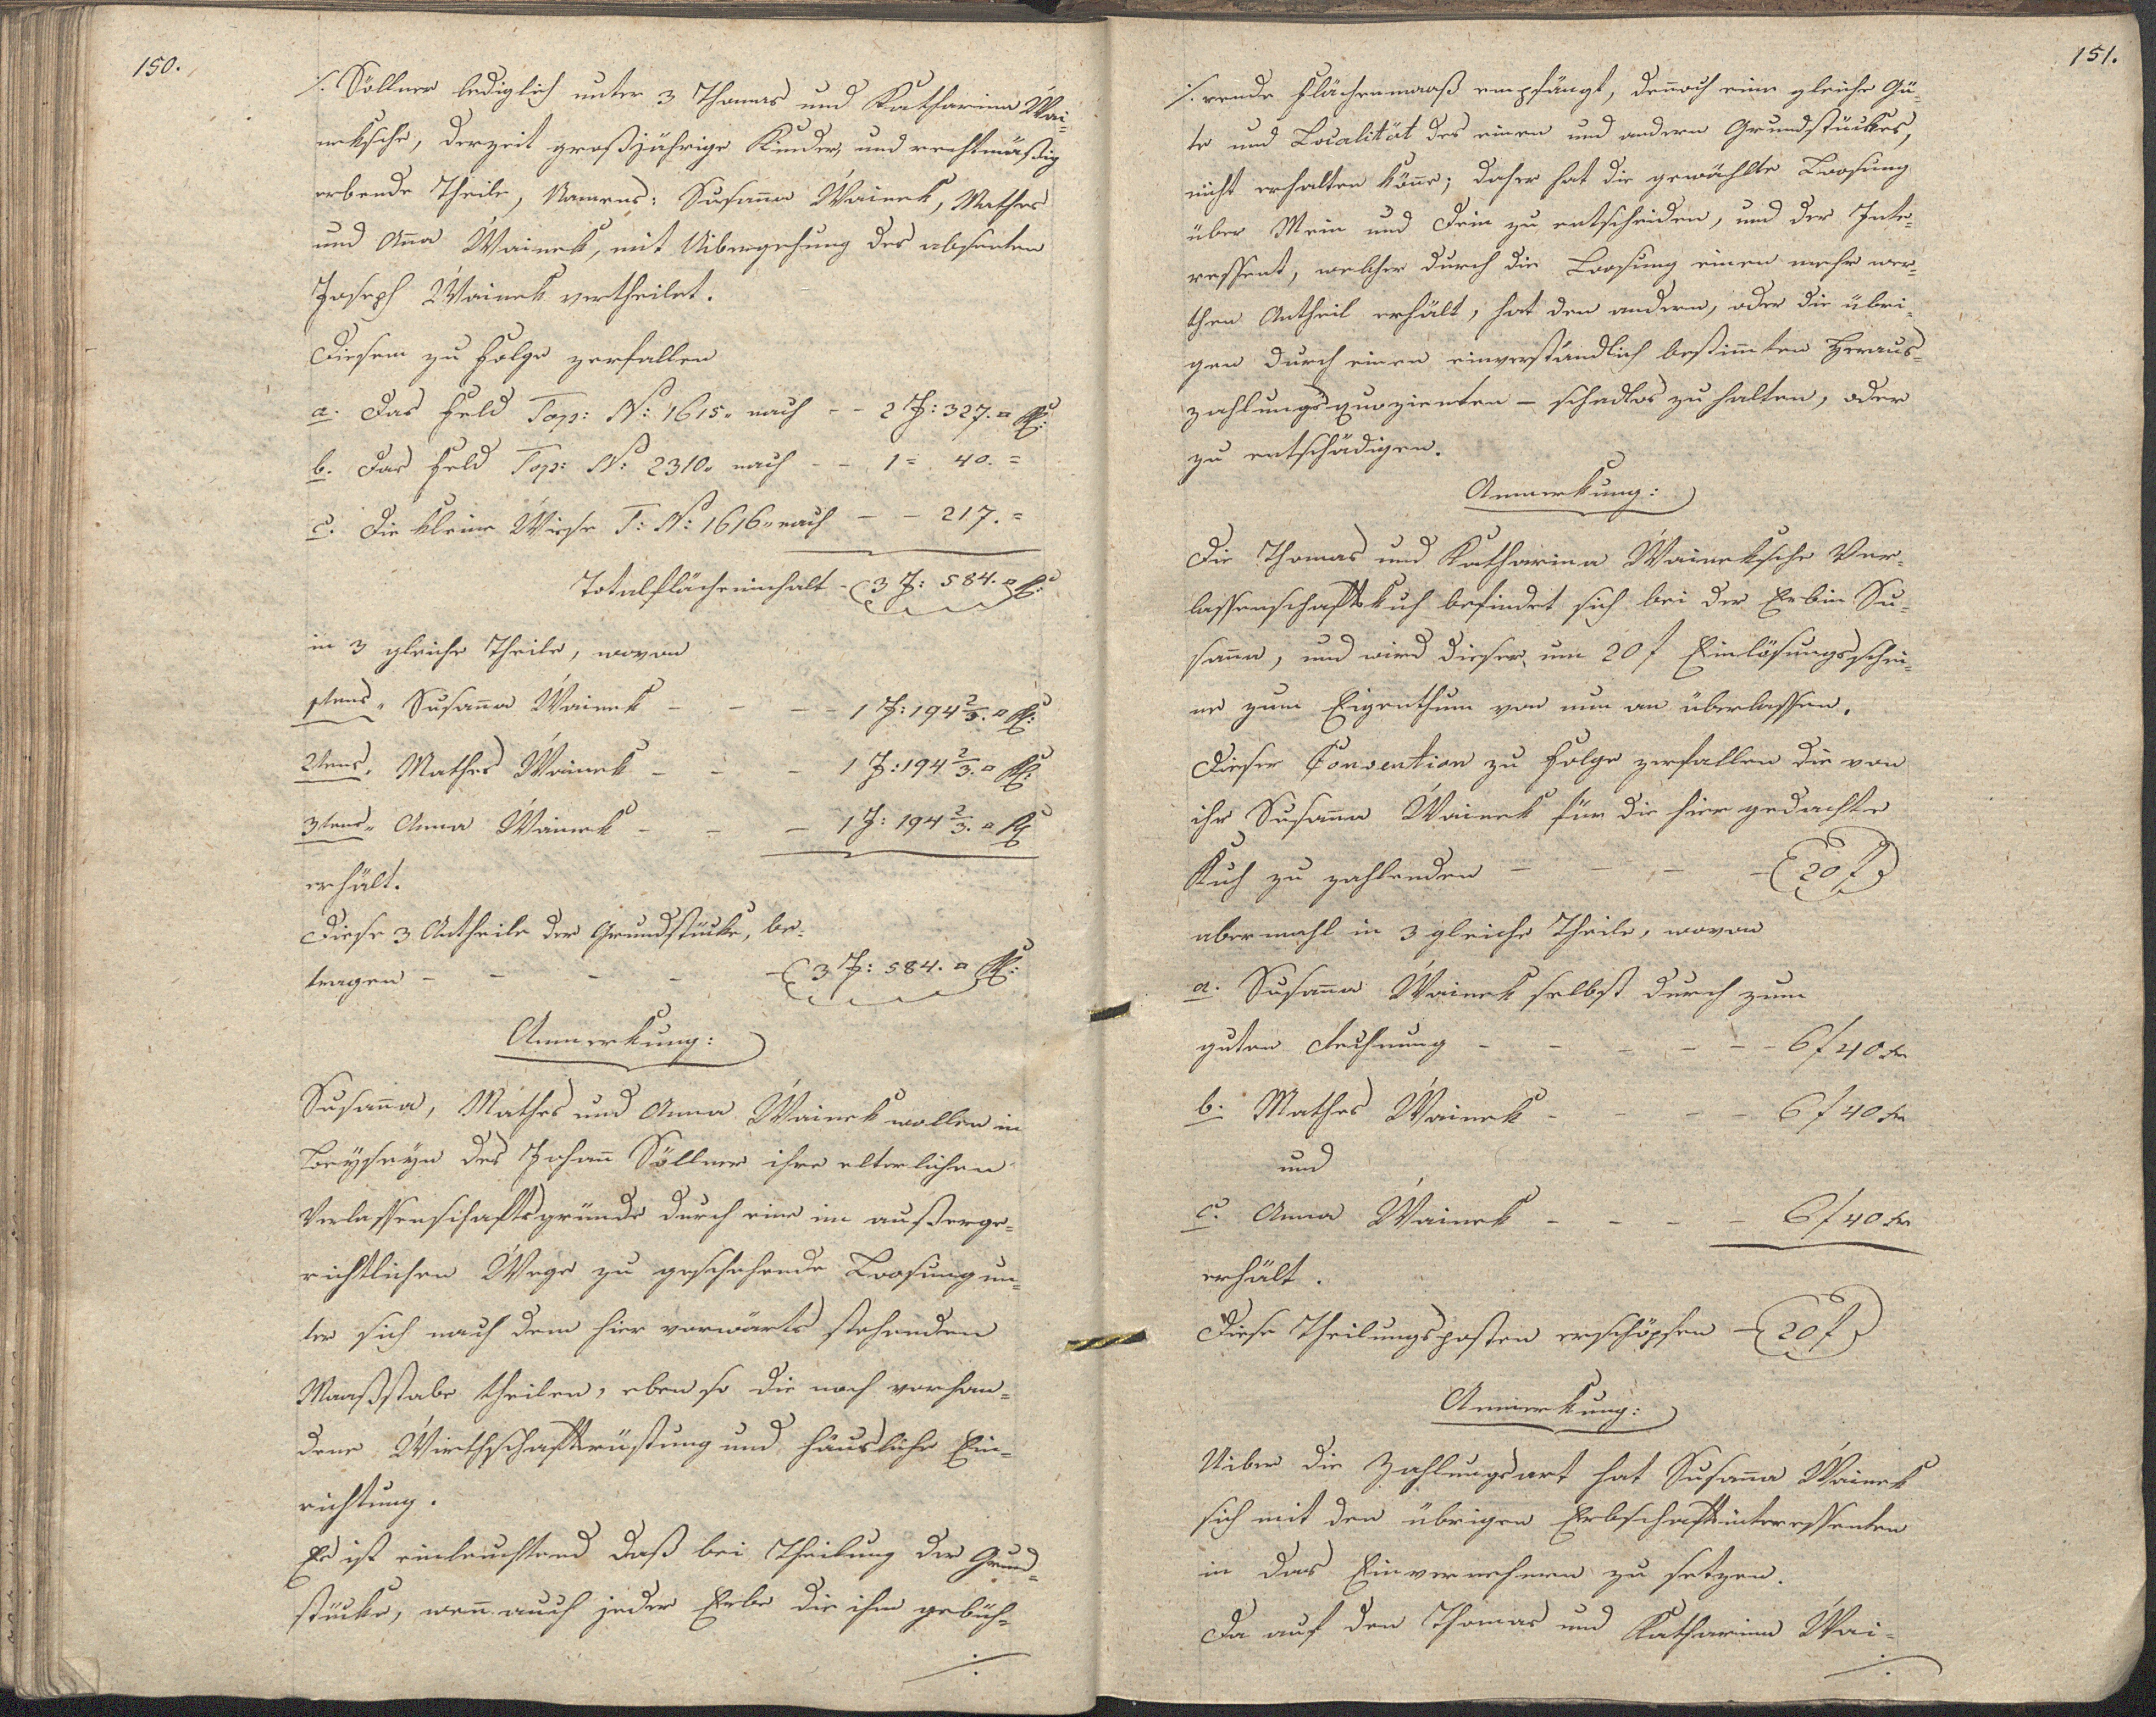 150.
./. Söllner lediglich unter 3 Thomas und Katharina Wai-
neksche, derzeit großjährige Kinder, und rechtmäßig
erbende Theile, Namens: Susaña Wainek, Mathes
und Aña Wainek, mit Uibergehung des absenten
Joseph Wainek vertheilet.
Diesem zu Folge zerfallen
a. Das Feld Top: N: 1615. nach - - 2 J: 327. □ Kl:
b. Das Feld Top: N: 2310. nach - - 1 = 40. =
c. Die kleine Wiese T: N: 1616. nach - - 217. =
Totalflächeninhalt - 3 J: 584. □ Kl:
in 3 gleiche Theile, wovon
1tens. Susaña Wainek - - - - 1 J: 194 2/3. □ Kl:
2tens. Mathes Wainek - - - 1 J: 194 2/3. □ Kl:
3tens. Anna Wainek - - - 1 J: 194 2/3. □ Kl
erhält.
Diese 3 Antheile der Grundstücke, be-
tragen - - - - - 3 J: 584. □ Kl:
Anmerkung:
Susaña, Mathes und Anna Wainek wollen in
Beyseyn des Johañ Söllner ihre elterlichen
Verlassenschaftsgründe durch eine im außerge-
richtlichen Wege zu geschehende Loosung un-
ter sich nach dem hier vorwärts stehenden
Maaßstabe theilen, eben so die noch vorhan-
dene Wirthschaftsrüstung und häusliche Ein-
richtung.
Es ist einleuchtend daß bei Theilung der Grund-
stücke, weñ auch jeder Erbe die ihm gebüh-
./.
151.
./. rende Flächenmaaß empfängt, deñoch eine gleiche Gü-
te und Localität des einen und andern Grundstückes,
nicht erhalten köñe; daher hat die gewählte Loosung
über Mein und Dein zu entscheiden, und der Inte-
ressent, welcher durch die Loosung einen mehr wer-
then Antheil erhält, hat den andern, oder die übri-
gen durch einen einverständlich bestim̃ten Heraus-
zahlungsquozienten - schadlos zu halten, oder
zu entschädigen.
Anmerkung:
Die Thomas und Katharina Waineksche Ver-
lassenschaftskuh befindet sich bei der Erbin Su-
saña, und wird dieser um 20 f Einlösungsschei-
ne zum Eigenthum von nun an überlassen.
Dieser Convention zu Folge zerfallen die von
ihr Susaña Wainek für die hier gedachte
Kuh zu zahlenden - - - - 20 f
abermahl in 3 gleiche Theile, wovon
a. Susaña Wainek selbst durch zum
guten Rechnung - - - - - - 6 f 40 kr
b. Mathes Wainek - - - - 6 f 40 kr
und
c. Anna Wainek - - - - 6 f 40 kr
erhält.
Diese Theilungsposten erschöpfen - 20 f
Anmerkung:
Uiber die Zahlungsart hat Susaña Wainek
sich mit den übrigen Erbschaftsinteressenten
in das Einvernehmen zu setzen.
Da auf den Thomas und Katharina Wai-
./.